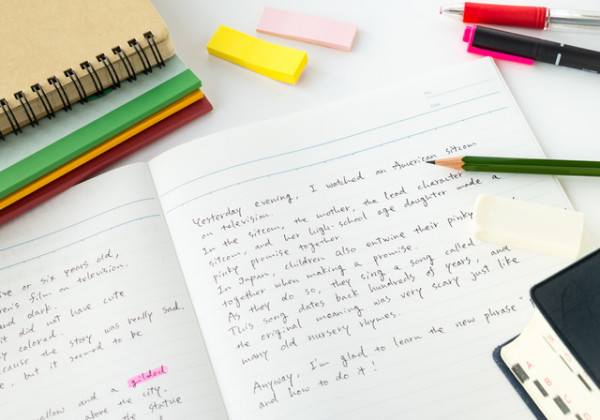 ive or six years old,
ren's film on television.
and dark.
it did not have cute
y colored.
ecause the story was really sad.
, but it seemed to be
gilded
allow and a
above the city.
the statue
No.
Date
Yesterday evening, I watched an American sitcom
on television.
In the sitcom, the mother, the lead character
sitcom, and her high-school age daughter made a
pinky promise together.
In Japan, children also entwine their pinky
together when making a promise.
As they do so, they sing a song called
This song dates back hundreds of years, and
the original meaning was very scary just like
many old nursery rhymes.
Anyway, I'm glad to learn the new phrase
and how to do it!
A
B
C
D